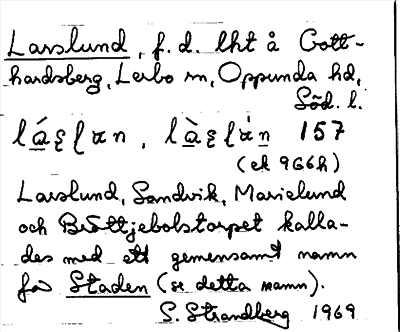 Larslund, f.d. lht å Gott-
hardsberg, Lerbo sn, Oppunda hd,
Söd. l.
157
(ek 9G6h)
Larslund, Sandvik, Marielund
och Bråttjebolstorpet kalla-
des med ett gemensamt namn
för Staden (se detta namn).
S. Strandberg 1969